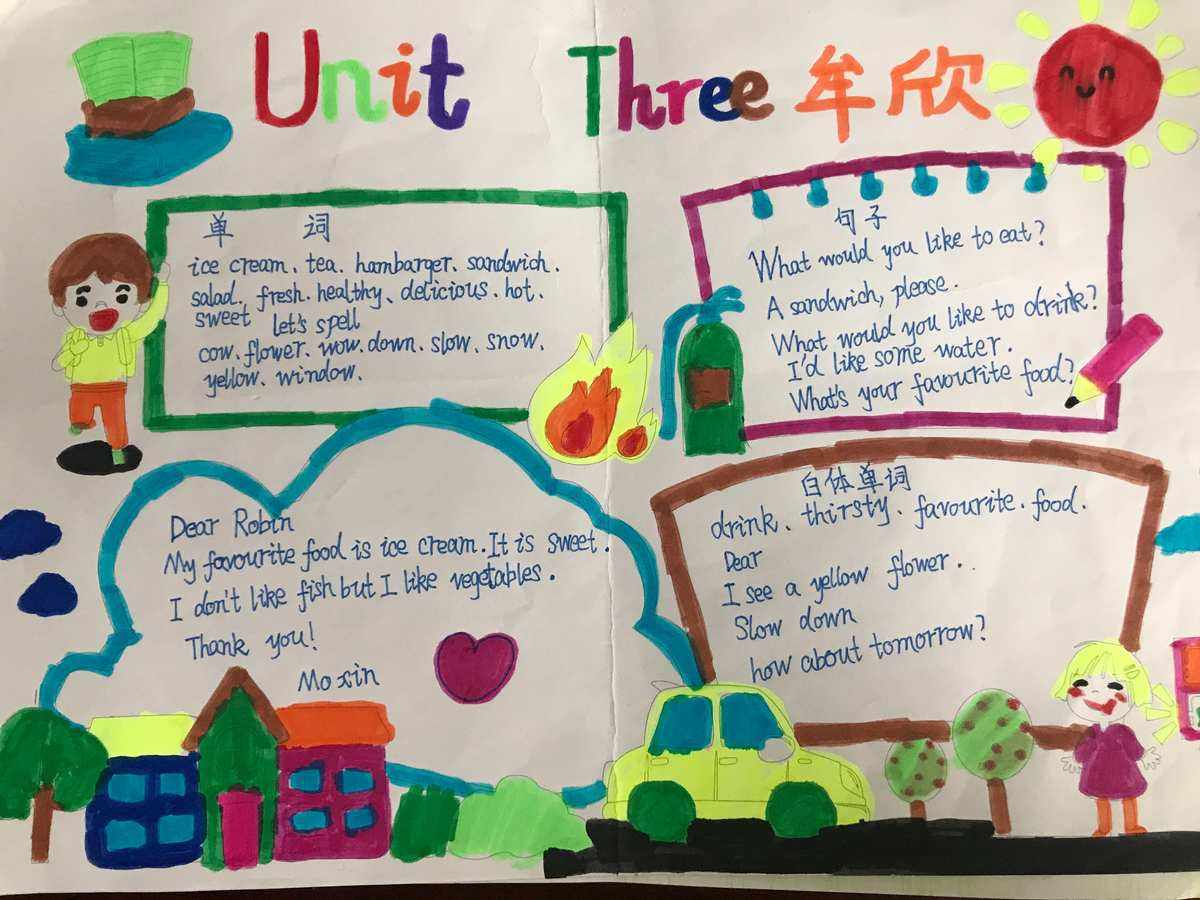 Unit Three 牟欣
单 词
ice cream、tea、hambarger、sandwich.
salad、fresh.healthy、delicious.hot.
sweet let's spell
cow.flower.wow.down.slow.snow.
yellow、window.
句子
What would you like to eat?
A sandwich, please.
What would you like to drink?
I'd like some water.
What's your favourite food?
Dear Robin
My favourite food is ice cream.It is sweet.
I don't like fish but I like vegetables.
Thank you!
Mo xin
白体单词
drink、thirsty、favourite.food.
Dear
I see a yellow flower..
Slow down
how about tomorrow?